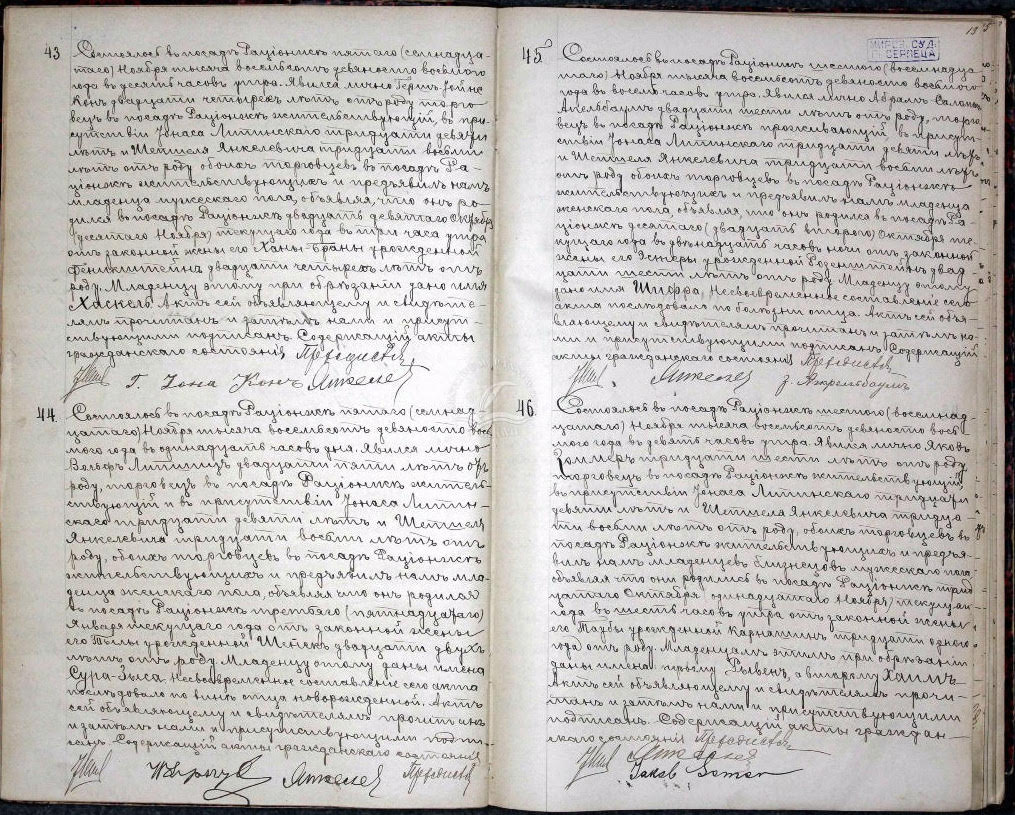 43
Состоялось въ посадѣ Рационжъ пятаго (семнадца-
таго) Ноября тысяча восемьсотъ девяносто восьмого
года въ десять часовъ утра. Явился лично Гершъ
Конъ двадцати четырехъ лѣтъ отъ роду торго-
вецъ въ посадѣ Рационжъ жительствующій, въ при-
сутствіи Іонаса Липинскаго тридцати девяти
лѣтъ и Шепшеля Янкелевича тридцати восьми
лѣтъ отъ роду обоихъ торговцевъ въ посадѣ Ра-
ціонжъ жительствующихъ и предъявилъ намъ
младенца мужескаго пола, объявляя, что онъ ро-
дился въ посадѣ Раціонжъ двадцать девятаго Октября
(десятаго Ноября) текущаго года въ три часа утра
отъ законной жены его Ханы-Браны урожденной
Финкштейнъ двадцати четырехъ лѣтъ отъ
роду. Младенцу этому при обрѣзаніи дано имя
Хаскель. Актъ сей объявляющему и свидѣте-
лямъ прочитанъ и затѣмъ нами и присут-
ствующими подписанъ. Содержащій акты
гражданскаго состоянія
Г. Іона Конъ
44
Состоялось въ посадѣ Раціонжъ пятаго (семнад-
цатаго) Ноября тысяча восемьсотъ девяносто вось
мого года въ одинадцать часовъ дня. Явился лично
Вольфъ двадцати пяти лѣтъ отъ
роду, торговецъ въ посадѣ Раціонжъ житель-
ствующій и въ присутствіи Іонаса Липин-
скаго тридцати девяти лѣтъ и Шепшеля
Янкелевича тридцати восьми лѣтъ отъ
роду, обоихъ торговцевъ въ посадѣ Раціонжъ
жительствующихъ и предъявилъ намъ мла-
денца женскаго пола, объявляя что онъ родился
въ посадѣ Раціонжъ третьяго (пятнадцатаго)
Января текущаго года отъ законной жены
его урожденной двадцати двухъ
лѣтъ отъ роду. Младенцу этому даны имена
Сура-Зыса. Несвоевременное составленіе сего акта
послѣдовало по винѣ отца новорожденной. Актъ
сей объявляющему и свидѣтелямъ прочитанъ
и затѣмъ нами и присутствующими подпи-
санъ. Содержащій акты гражданскаго состоянія
МИРОВ. СУД.
Г. СЕРПЕЦА
45
Состоялось въ посадѣ Раціонжъ шестого (восемнадца-
таго) Ноября тысяча восемьсотъ девяносто восьмого
года въ восемь часовъ утра. Явился лично Абрамъ-Саломонъ
Апельбаумъ двадцати шести лѣтъ отъ роду, торго-
вецъ въ посадѣ Раціонжъ проживающій въ присут-
ствіи Іонаса Липинскаго тридцати девяти лѣтъ
и Шепшеля Янкелевича тридцати восьми лѣтъ
отъ роду обоихъ торговцевъ въ посадѣ Раціонжъ
жительствующихъ и предъявилъ намъ младенца
женскаго пола, объявляя, что онъ родился въ посадѣ Ра-
ціонжъ десятаго (двадцать второго) Октября те-
кущаго года въ двѣнадцать часовъ ночи отъ законной
жены его Эстеры урожденной Розенштейнъ двад-
цати шести лѣтъ отъ роду. Младенцу этому
дано имя Шифра. Несвоевременное составленіе сего
акта послѣдовало по болѣзни отца. Актъ сей объя-
вляющему и свидѣтелямъ прочитанъ и затѣмъ на-
ми и присутствующими подписанъ. Содержащій
акты гражданскаго состоянія
46
Состоялось въ посадѣ Раціонжъ шестого (восемнад-
цатаго) Ноября тысяча восемьсотъ девяносто вось-
мого года въ девять часовъ утра. Явился лично Яковъ
Зоммеръ тридцати шести лѣтъ отъ роду
торговецъ въ посадѣ Раціонжъ жительствующій,
въ присутствіи Іонаса Липинскаго тридцати
девяти лѣтъ и Шепшеля Янкелевича тридца-
ти восьми лѣтъ отъ роду, обоихъ торговцевъ въ
посадѣ Раціонжъ жительствующихъ и предъя-
вилъ намъ младенцевъ близнецовъ мужескаго пола
объявляя что они родились въ посадѣ Раціонжъ трид
цатаго Октября (одинадцатаго Ноября) текущаго
года въ шесть часовъ утра отъ законной жены
его Таубы урожденной Карнашинъ тридцати одного
года отъ роду. Младенцамъ этимъ при обрѣзаніи
даны имена: первому Рывенъ, а второму Хаимъ.
Актъ сей объявляющему и свидѣтелямъ прочи-
танъ и затѣмъ нами и присутствующими
подписанъ. Содержащій акты граждан-
скаго состоянія
Jakob